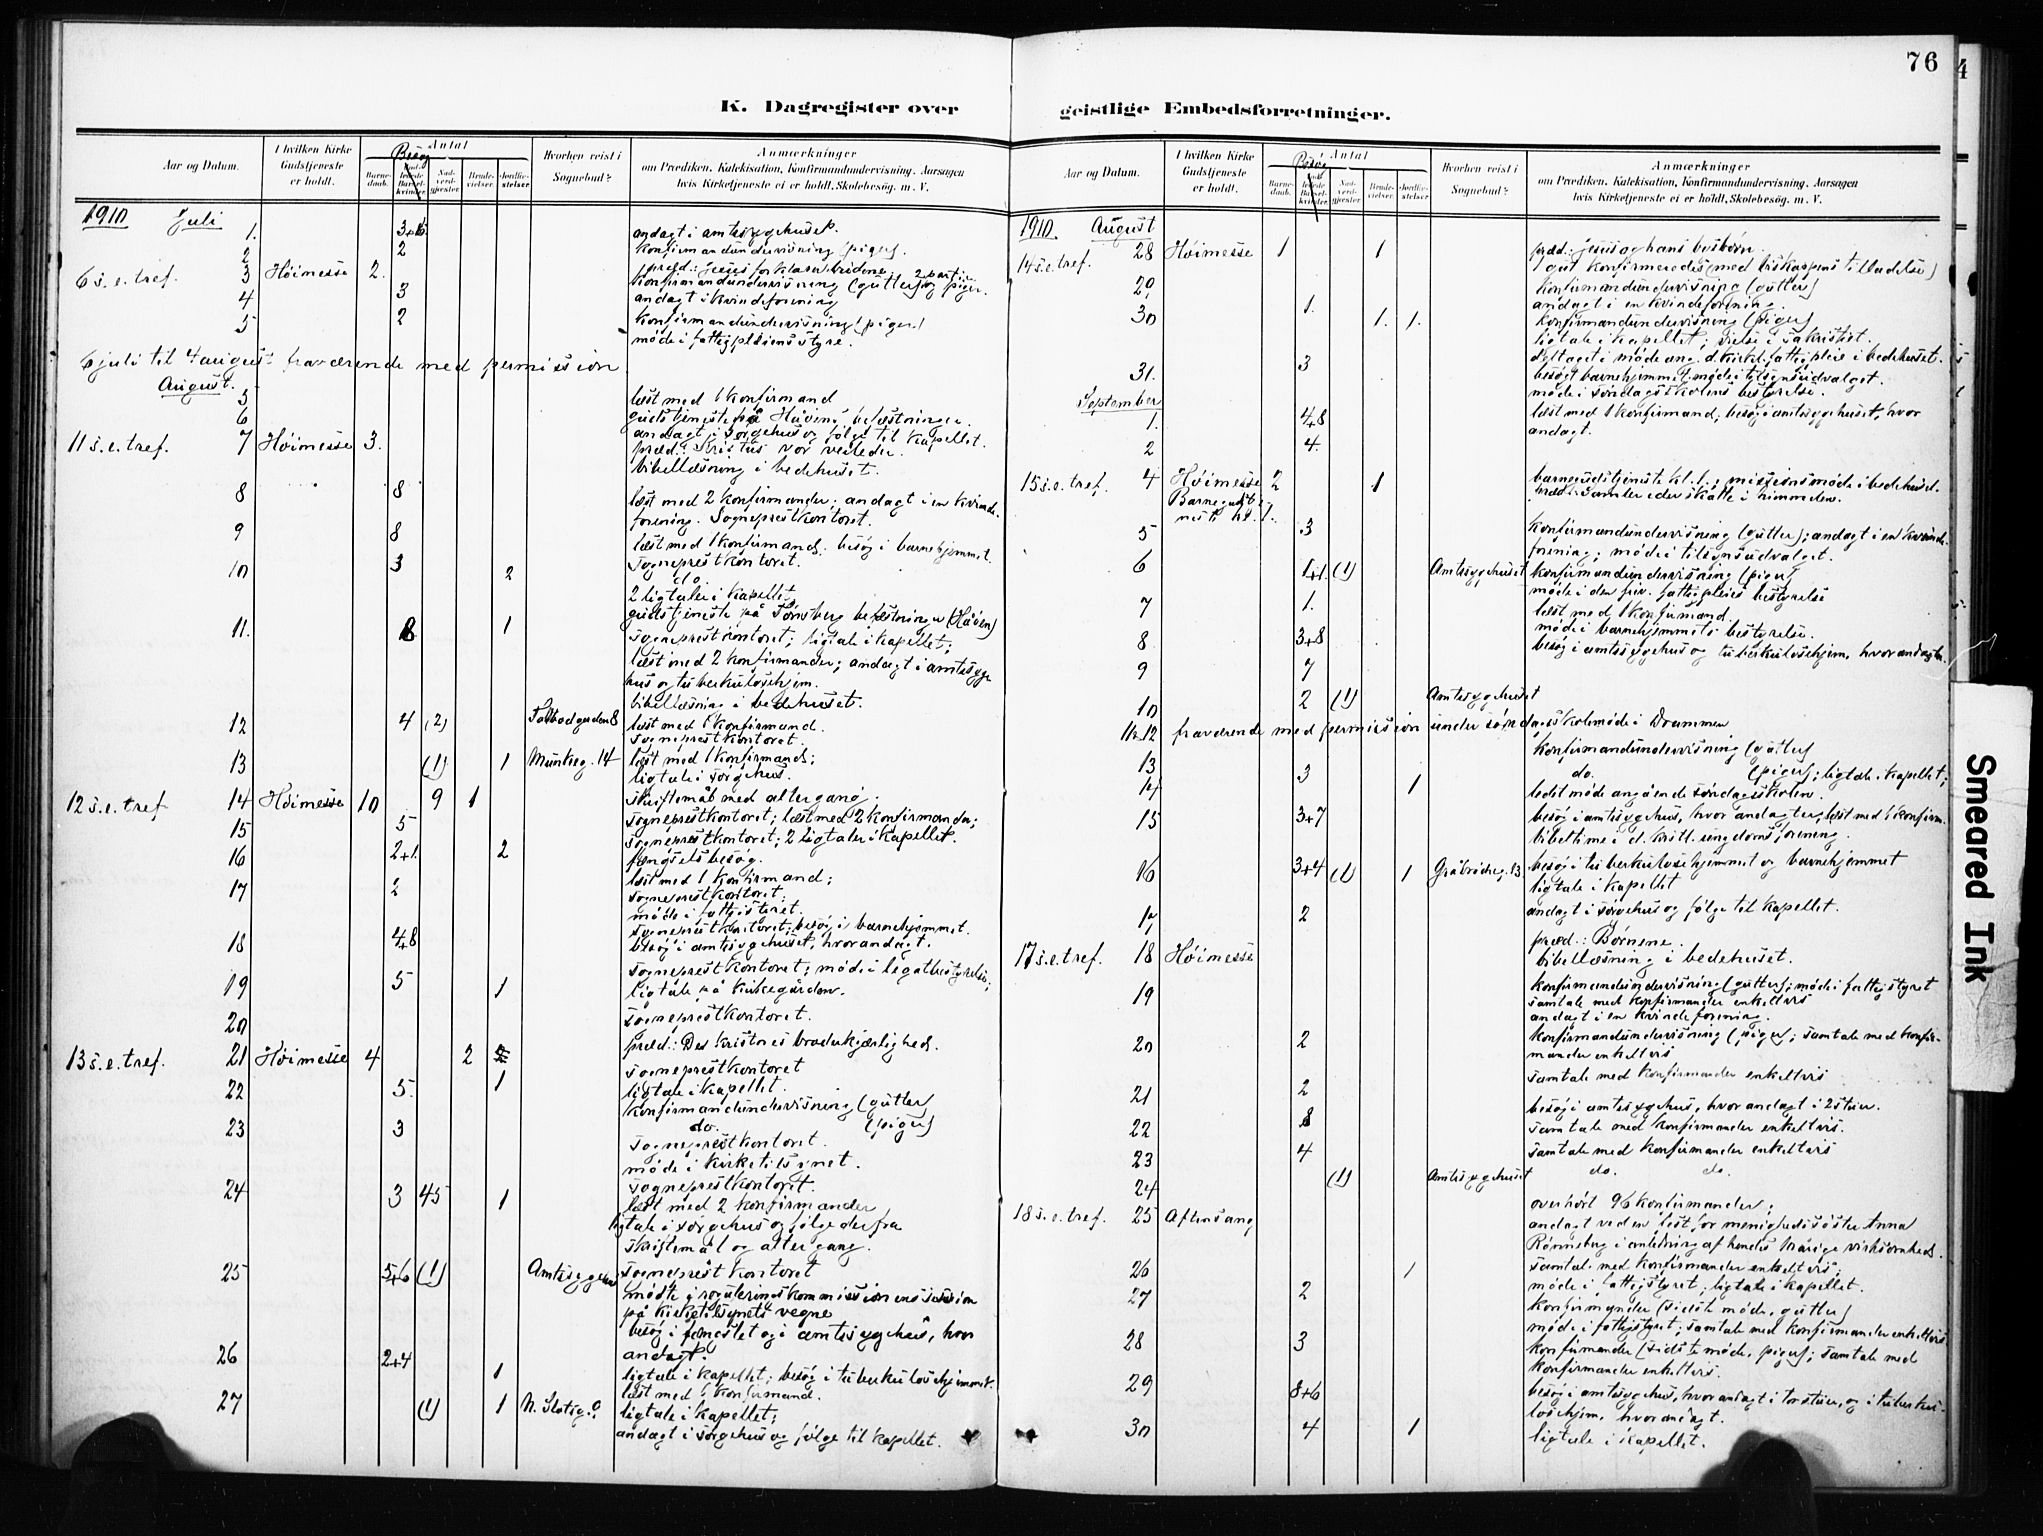 76
K. Dagregister over geistlige Embedsforretninger.
Aar og Datum.
I hvilken Kirke Gudstjeneste er holdt.
Antal
Besøg
Barnedaab.
Indledede Barselkvinder.
Nadverdgjester.
Brudevielser.
Jordfæstelser.
Hvorhen reist i Sognebud?
Anmærkninger
om Prædiken, Katekisation, Konfirmandundervisning, Aarsagen
hvis Kirketjeneste ei er holdt, Skolebesøg. m. V.
1910 Juli
1. andagt i amtssygehuset.
2 2 Konfirmandundervisning (piger).
6 s. e. tref. 3 Høimesse 2. præd.: Jesus forklarer
Konfirmandundervisning (gutter) og piger.
4 3 andagt i kvindeforening
5 2 Konfirmandundervisning (piger)
møde i fattigpleiens styre.
6 juli til 4 august fraværende med permission
August.
5 læst med 1 konfirmand
6 gudstjeneste på Håøens befæstninger
andagt i sørgehus og følge til kapellet.
11 s. e. tref. 7 Høimesse 3. præd.: Kristus vor veileder.
bibellæsning i bedehuset.
8 8 læst med 2 konfirmander; andagt i en kvindeforening. Sogneprestkontoret.
9 8 læst med 1 konfirmand. besøg i barnehjemmet.
sogneprestkontoret.
10 3 2 do.
2 ligtaler i kapellet
gudstjeneste på Tønsberg befæstninger (Håøen)
11. 8 1 sogneprestkontoret; ligtale i kapellet;
læst med 2 konfirmander; andagt i amtssyge
hus og tuberkulosehjem.
bibellæsning i bedehuset.
12 4 (2) Tolbodgaden 8 læst med 1 konfirmand.
sogneprestkontoret.
13 (1) 1 Munkeg. 14 læst med 1 konfirmand;
ligtale i sørgehus.
12 s. e. tref 14 Høimesse 10 9 1 skriftemål med altergang.
15 5 sogneprestkontoret; læst med 2 konfirmander;
16 2+1. 2 sogneprestkontoret; 2 ligtaler i kapellet.
fængselsbesøg.
17 2 læst med 1 konfirmand;
sogneprestkontoret.
møde i fattigstyret.
18 4+8 sogneprestkontoret; besøg i barnehjemmet.
besøg i amtssygehuset, hvor andagt.
19 5 1 sogneprestkontoret; møde i legatbestyrelse;
ligtale på kirkegården.
20 sogneprestkontoret.
13 s. e. tref. 21 Høimesse 4 2 præd.: Den kristnes broderkjærlighed.
22 5. 1 sogneprestkontoret
ligtale i kapellet.
Konfirmandundervisning (gutter
23 3 do. (piger)
sogneprestkontoret.
møde i kirketilsynet.
24 3 45 1 sogneprestkontoret.
læst med 2 konfirmander
ligtale i sørgehus og følge derfra
skriftemål og altergang.
25 5+6 (1) Amtssygehus sogneprestkontoret
mødte i reguleringskommissionens session
på kirketilsynets vegne
besøg i fængslet og i amtssygehus, hvor
andagt.
26 2+4 1 ligtale i kapellet; besøg i tuberkulosehjemmet.
læst med 1 konfirmand.
27 (1) 1 N. Slotsg. ligtale i kapellet;
andagt i sørgehus og følge til kapellet.
Aar og Datum.
I hvilken Kirke Gudstjeneste er holdt.
Antal
Besøg
Barnedaab.
Indledede Barselkvinder.
Nadverdgjester.
Brudevielser.
Jordfæstelser.
Hvorhen reist i Sognebud?
Anmærkninger
om Prædiken, Katekisation, Konfirmandundervisning, Aarsagen
hvis Kirketjeneste ei er holdt, Skolebesøg. m. V.
1910. August
14 s. e. tref. 28 Høimesse 1 1 præd.: Jesus og hans
1 gut konfirmeredes (med biskopens tilladelse)
29 Konfirmandundervisning (gutter)
andagt i en kvindeforening.
30 1. 1. 1. konfirmandundervisning (piger)
ligtale i kapellet; vielse i sakristiet.
deltaget i møde ang. d. kirkel. fattigpleie i bedehuset.
31. 3 besøgt barnehjemmet. møde i tilsynsudvalget.
møde i søndagsskolens bestyrelse.
September
1. 4+8 læst med 1 konfirmand; besøg i amtssygehuset, hvor
andagt.
2 4.
15 s. e. tref. 4 Høimesse 2 1 barnegudstjeneste kl. 1; missionsmøde i bedehuset
Barnegudstjeneste kl. 1. præd.: Samler eder skatte i himmelen.
5 3 Konfirmandundervisning (gutter); andagt i en kvindeforening; møde i tilsynsudvalget.
6 1+1. (1) Amtssygehuset konfirmandundervisning (piger)
møde i den priv. fattigpleies bestyrelse
7 1. læst med 1 konfirmand.
møde i barnehjemmets bestyrelse.
8 3+8 besøg i amtssygehus og tuberkulosehjem, hvor andagter.
9 7
10 2 (1) Amtssygehuset
11&12 fraværende med permission under søndagsskolemøde i Drammen
13 konfirmandundervisning (gutter)
14 3 1 do. (piger); ligtale i kapellet;
ledet møde angående søndagsskolen.
15 3+7 besøg i amtssygehus, hvor andagter; læst med 1 konfirm.
bibeltime i d. kristl. ungdomsforening.
16 3+4 (1) 1 Gråbrødreg. 13 besøg i tuberkulosehjemmet og barnehjemmet
ligtale i kapellet
17 2 andagt i sørgehus og følge til kapellet.
17 s. e. tref. 18 Høimesse præd.: Børnene.
bibellæsning i bedehuset.
19 konfirmandundervisning (gutter); møde i fattigstyret
samtale med konfirmander enkeltvis
andagt i en kvindeforening.
20 2 konfirmandundervisning (piger); samtale med konfirmander enkeltvis
21 2 samtale med konfirmander enkeltvis
22 8 besøg i amtssygehus, hvor andagt i 2 stuer.
samtale med konfirmander enkeltvis.
23 4 samtale med konfirmander enkeltvis
24 (1) Amtssygehuset do. do.
18 s. e. tref. 25 Aftensang overhørt 96 konfirmander;
andagt ved en fest for menighedssøster Anna
Rønneberg i anledning af hendes årige virksomhed.
26 1 samtale med konfirmander enkeltvis;
møde i fattigstyret; ligtale i kapellet.
27 2 konfirmander (sidste møde, gutter)
møde i fattigstyret; samtale med konfirmander enkeltvis
28 3 konfirmander (sidste møde, piger); samtale med
konfirmander enkeltvis.
29 8+6 besøg i amtssygehus, hvor andagt i to stuer, og i tuberkulosehjem, hvor andagt.
30 4 1 ligtale i kapellet.
Smeared Ink